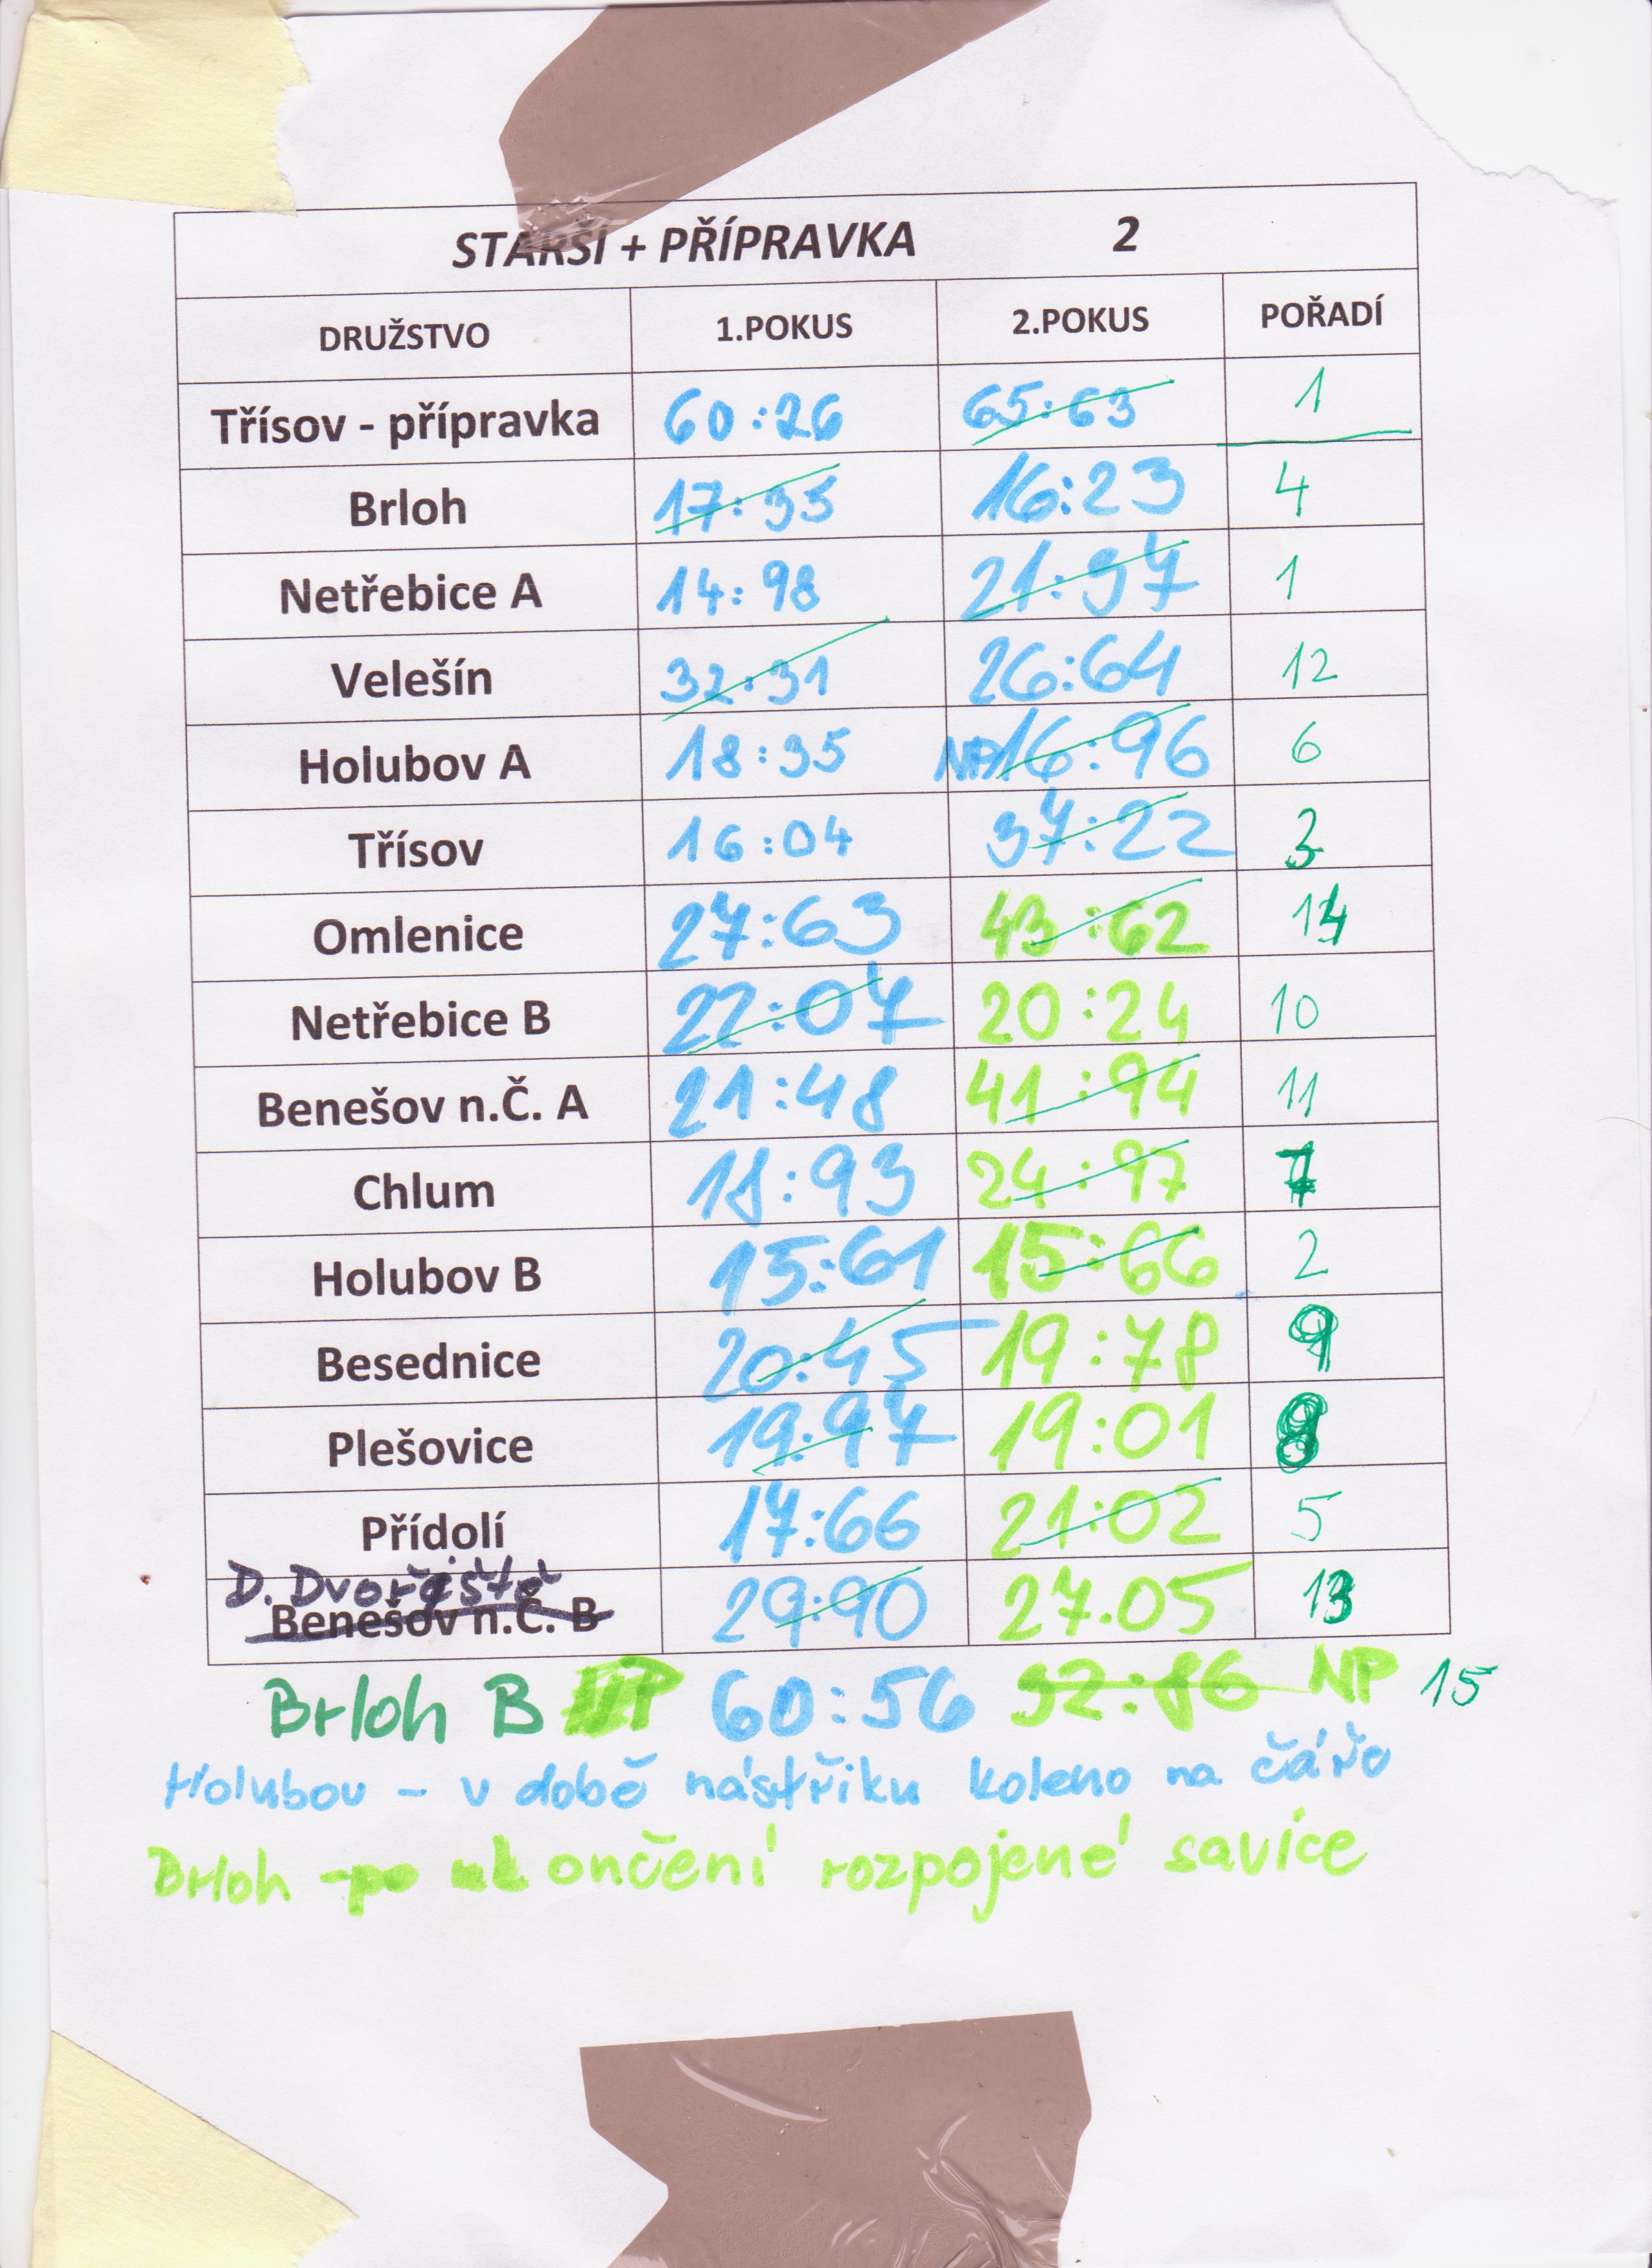 STARŠÍ + PŘÍPRAVKA 2
DRUŽSTVO 1.POKUS 2.POKUS POŘADÍ
Třísov - přípravka 60:26 65:63 1
Brloh 17:35 16:23 4
Netřebice A 14:98 21:97 1
Velešín 32:31 26:64 12
Holubov A 18:35 NP 16:96 6
Třísov 16:04 37:22 3
Omlenice 27:63 43:62 14
Netřebice B 22:07 20:24 10
Benešov n.Č. A 21:48 41:94 11
Chlum 18:93 24:97 7
Holubov B 15:61 15:66 2
Besednice 20:45 19:78 9
Plešovice 19:97 19:01 8
Přídolí 17:66 21:02 5
D. Dvořiště
Benešov n.Č. B 29:90 27.05 13
Brloh B NP 60:56 32:86 NP 15
Holubov - v době nástřiku koleno na čářo
Brloh - po ukončení rozpojené savice